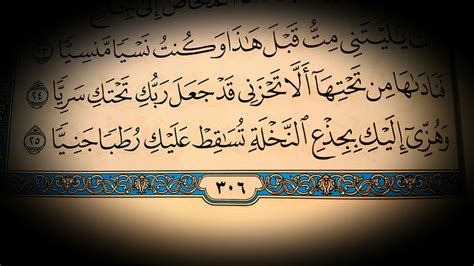 يَٰلَيۡتَنِي مِتُّ قَبۡلَ هَٰذَا وَكُنتُ نَسۡيٗا مَّنسِيّٗا ٢٣
فَنَادَىٰهَا مِن تَحۡتِهَآ أَلَّا تَحۡزَنِي قَدۡ جَعَلَ رَبُّكِ تَحۡتَكِ سَرِيّٗا ٢٤
وَهُزِّيٓ إِلَيۡكِ بِجِذۡعِ ٱلنَّخۡلَةِ تُسَٰقِطۡ عَلَيۡكِ رُطَبٗا جَنِيّٗا ٢٥
٣٠٦